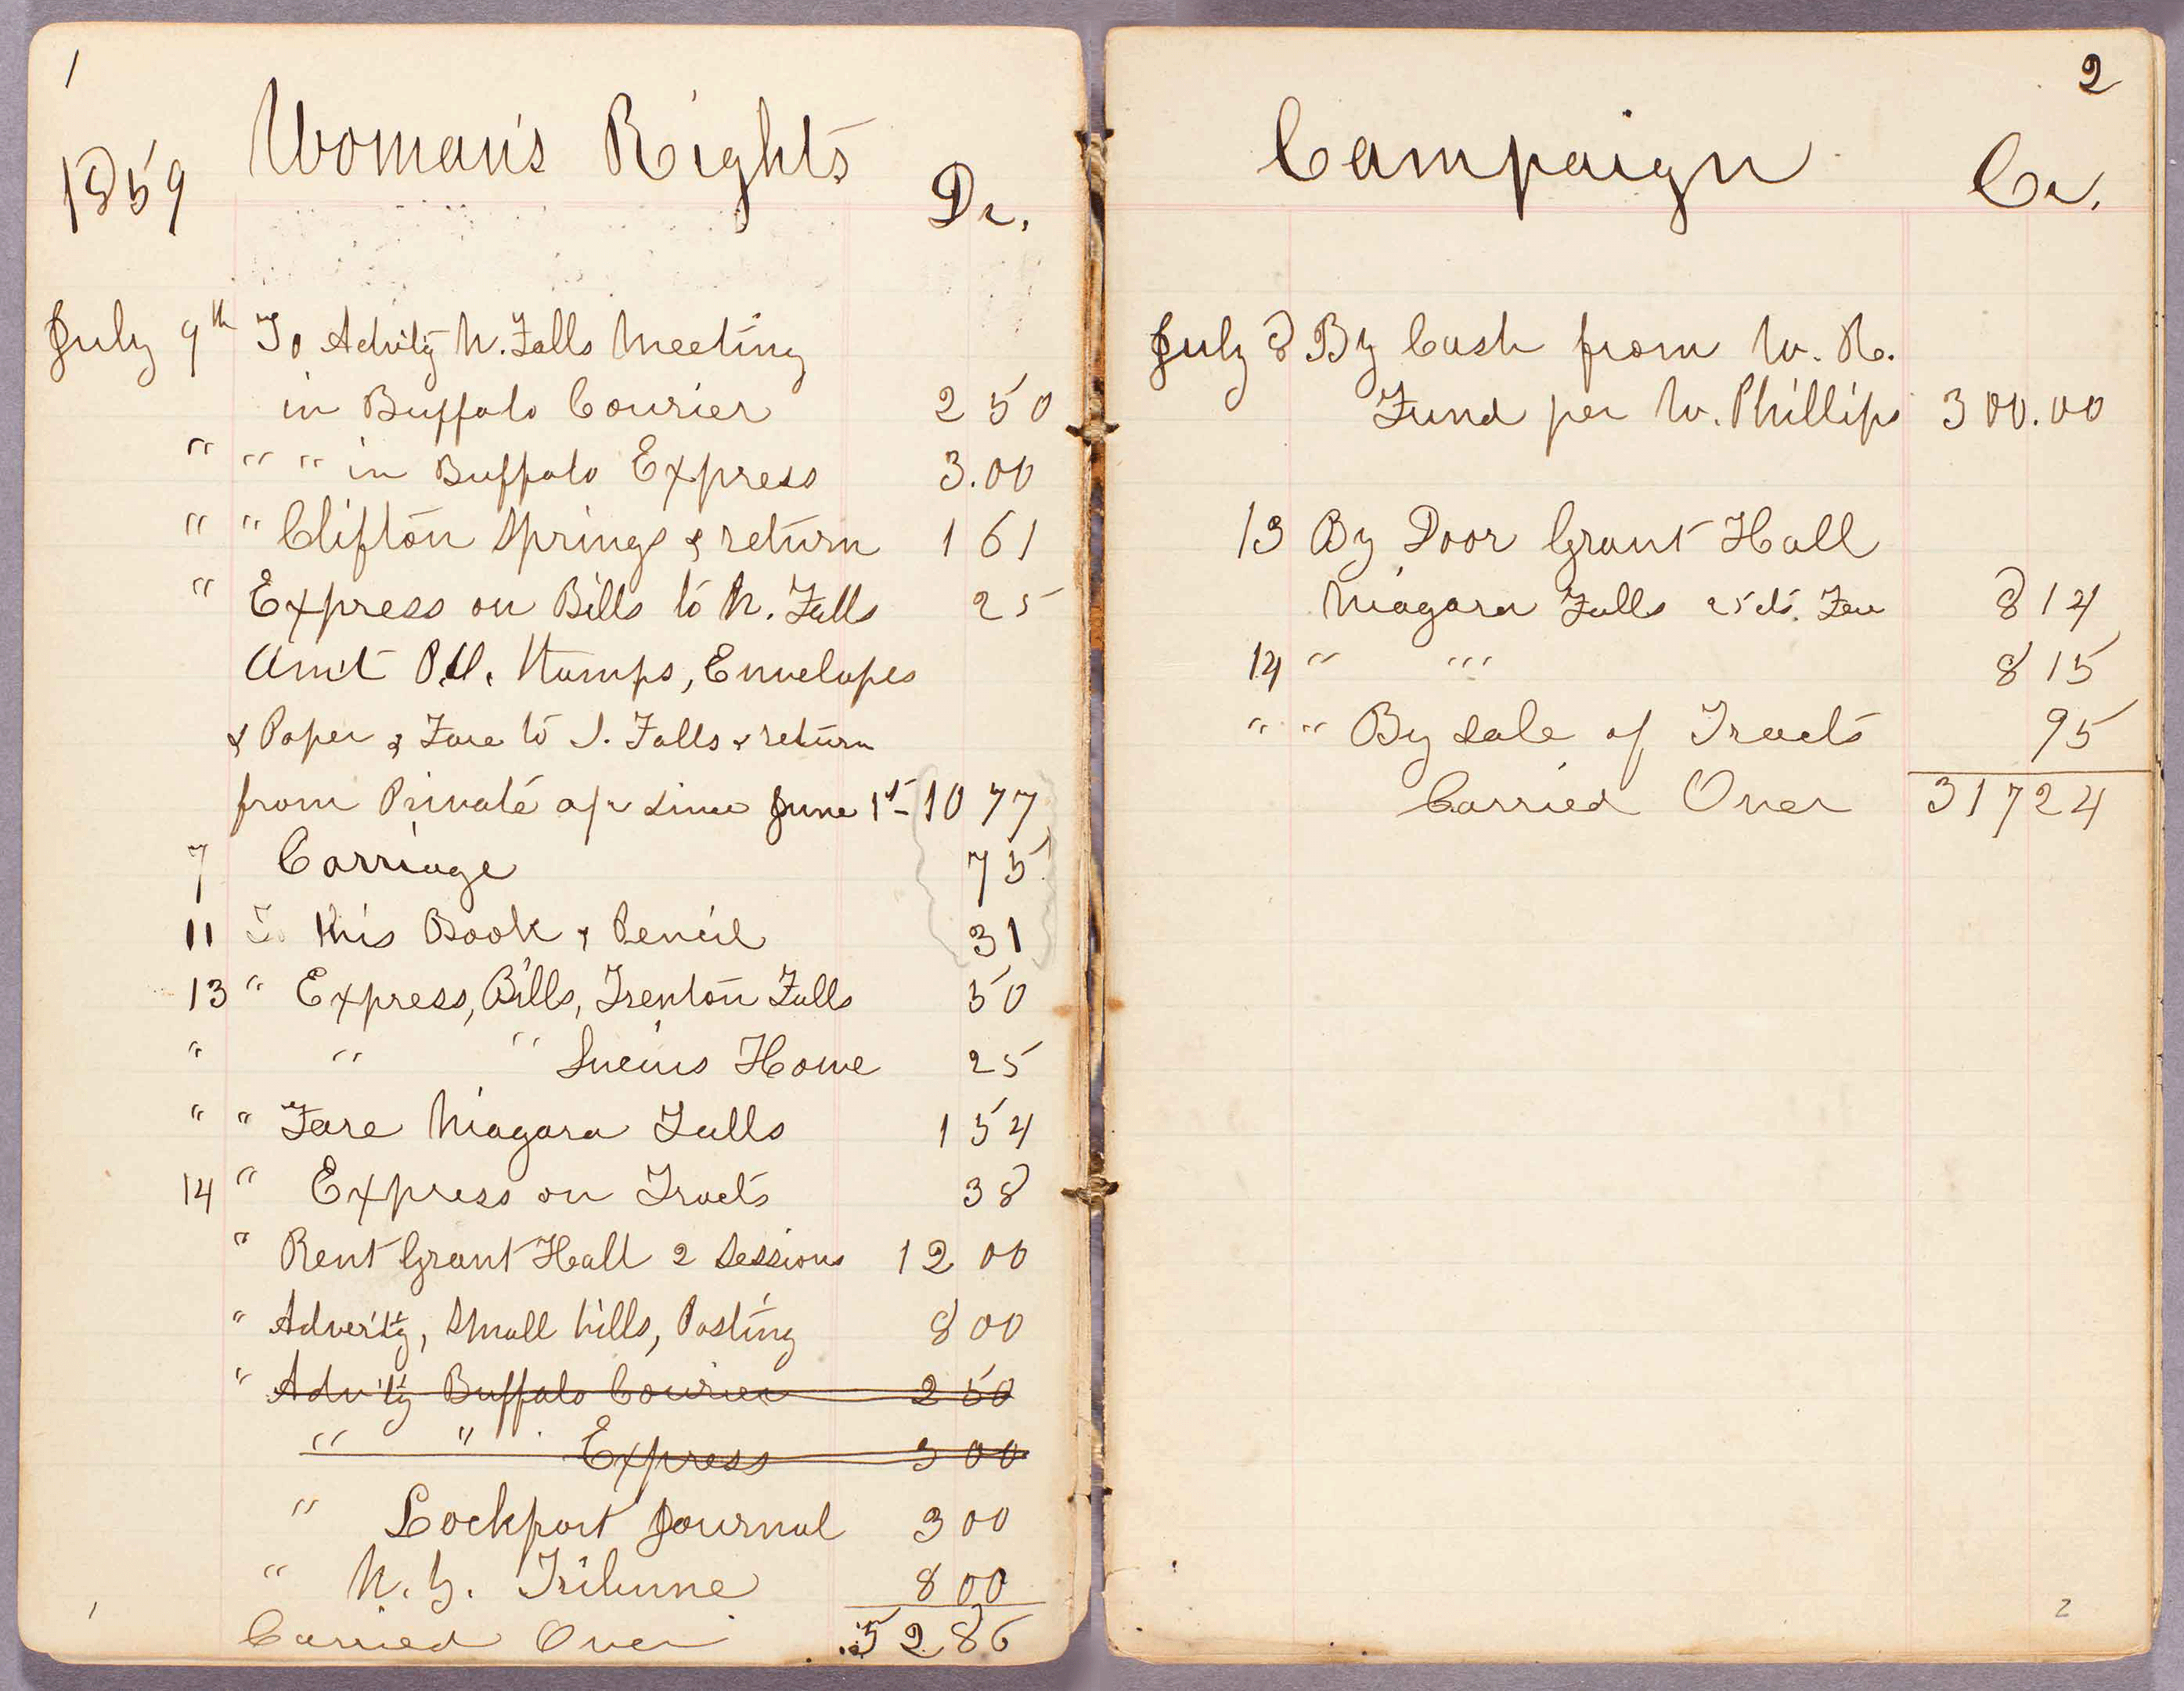 1
1859 Woman's Rights Dr.
July 9th To Advt'g N. Falls Meeting
in Buffalo Courier 2 50
" " " in Buffalo Express 3.00
" " Clifton Springs & return 1 61
" Express on Bills to N. Falls 25
Am't P.O. Stamps, Envelopes
& Paper & Fare to T. Falls & return
from Private a/c since June 1st - 10 77
7 Carriage 75
11 To this Book & Pencil 31
13 " Express, Bills, Trenton Falls 50
" " " Lucius Howe 25
" " Fare Niagara Falls 1 54
14 " Express on Tracts 38
" Rent Grant Hall 2 Sessions 12 00
" Advert'g, Small bills, Posting 8 00
" Adv't'g Buffalo Courier 2 50
" " Express 3 00
" Lockport Journal 3 00
" N. Y. Tribune 8 00
Carried Over 52 86
1
2
Campaign Cr.
July 8 By Cash from W. R.
Fund per W. Phillips 300.00
13 By Door Grant Hall
Niagara Falls 25 cts. Fee 8 14
14 " " ' 8 15
" " By Sale of Tracts 95
Carried Over 317 24
2